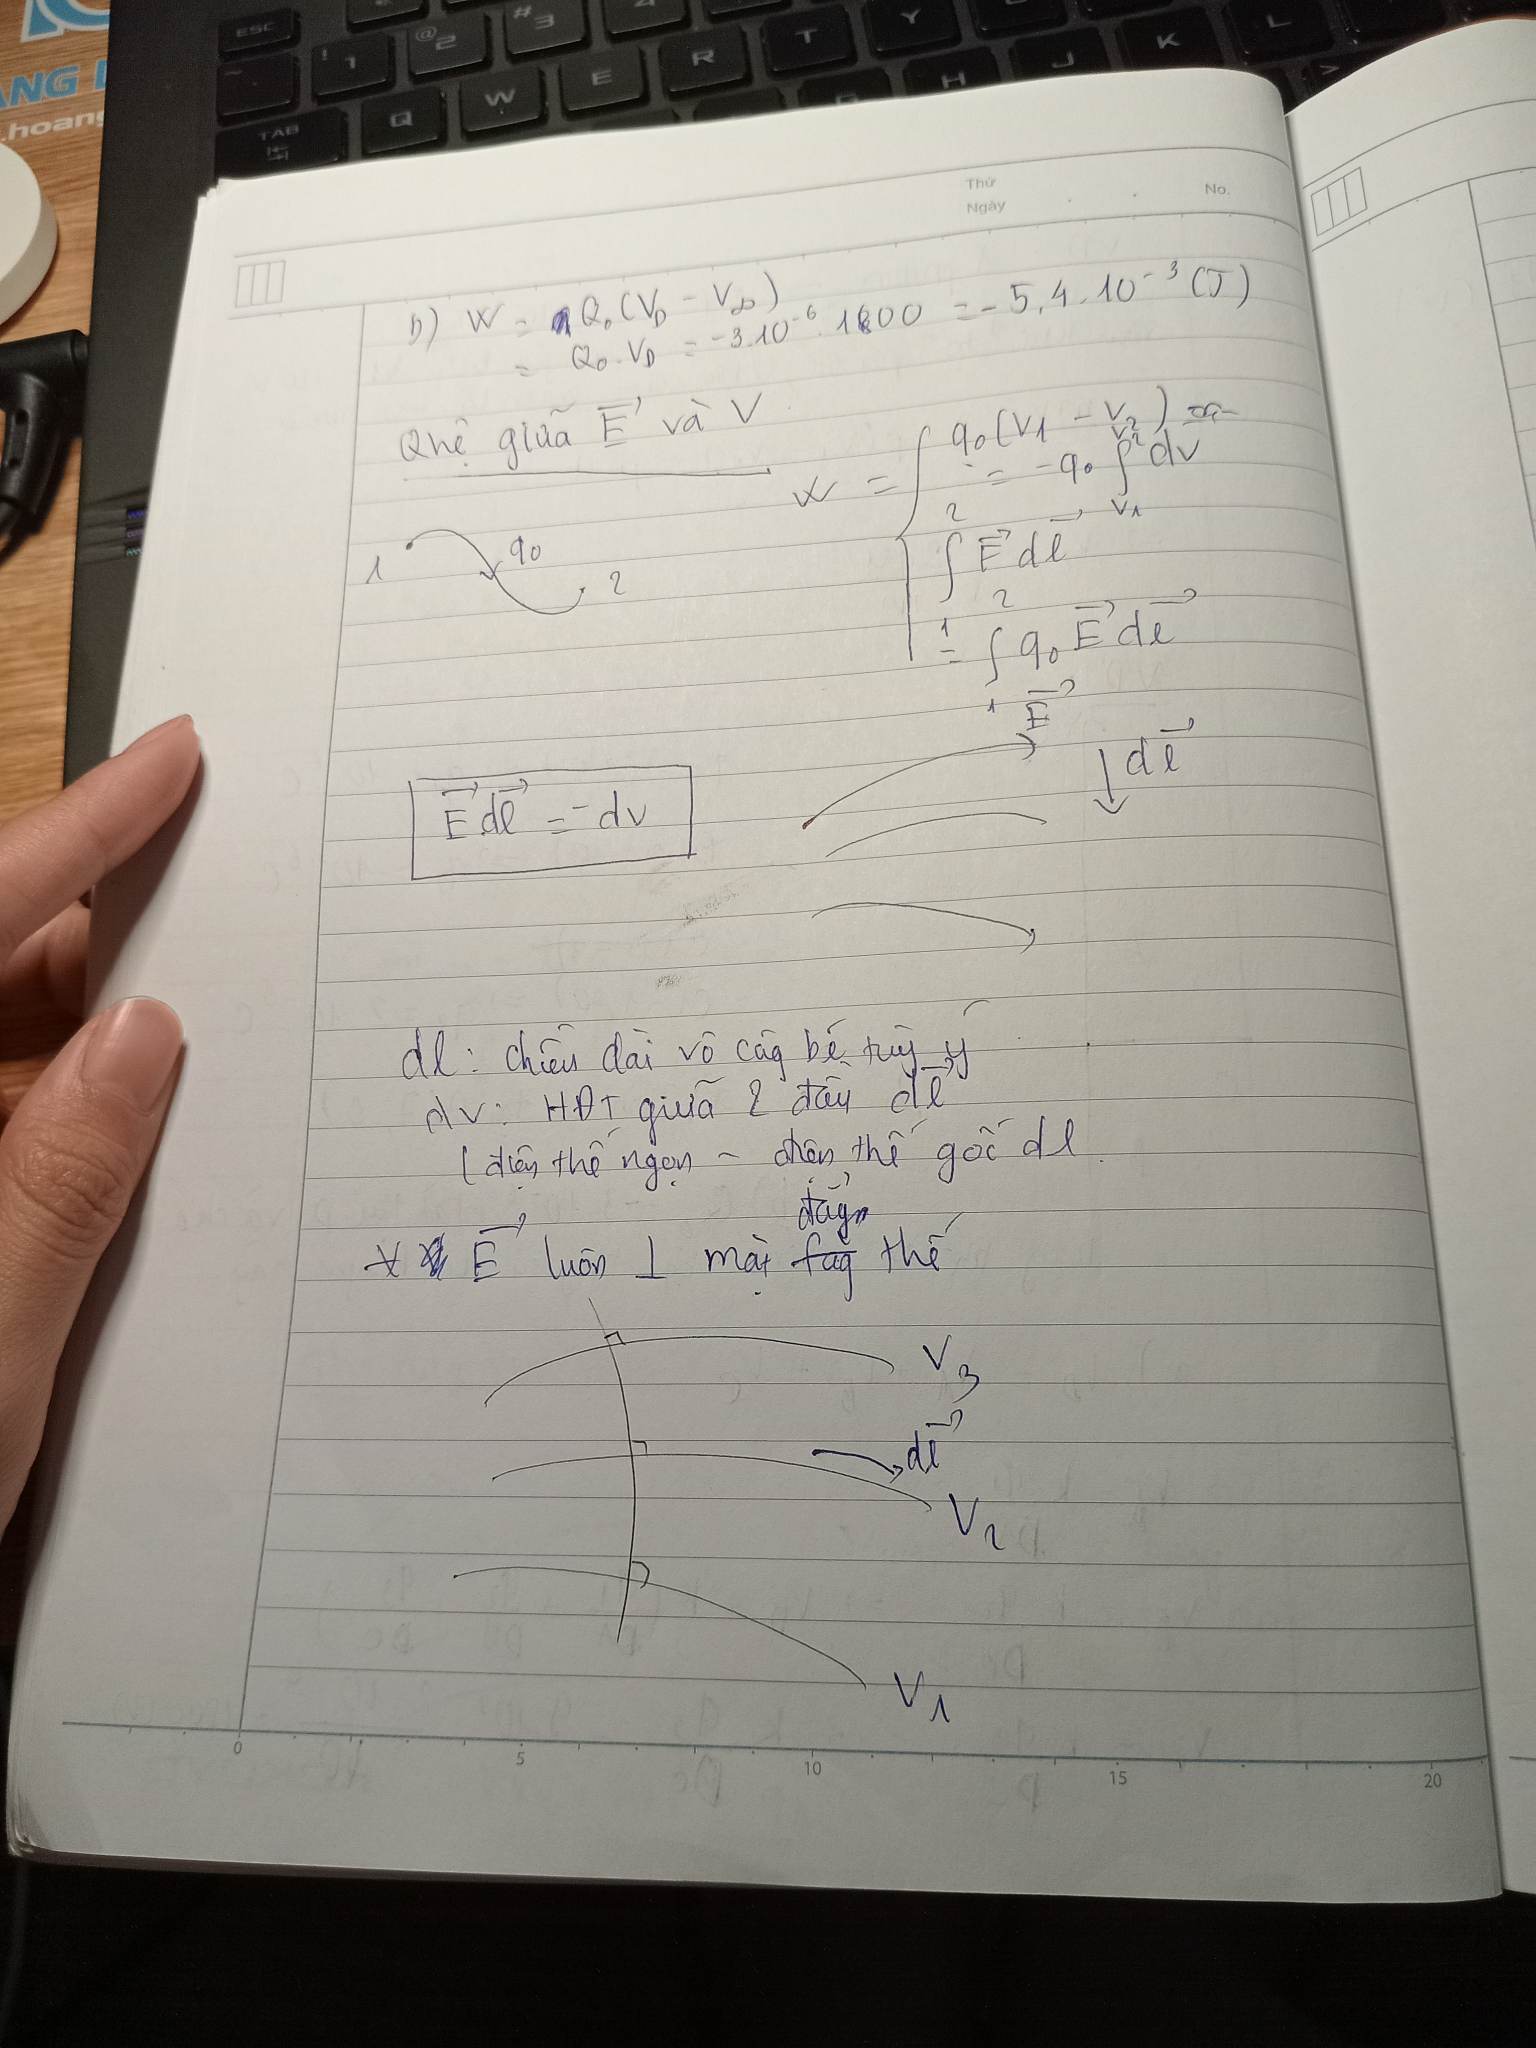 ESC
! 1
@ 2
# 3
4
~
TAB
Q
W
E
R
T
Y
H
J
K
L
>
ANG
.hoang
Thứ
Ngày
No.
b) W = Q₀(V_D − V_∞)
= Q₀.V_D = −3.10⁻⁶.1800 = −5,4.10⁻³ (J)
Qhệ giữa E⃗ và V
W = { q₀(V₁ − V₂)
= −q₀ ∫_{V₁}^{V₂} dv
∫₁² F⃗ dl⃗
= ∫₁² q₀ E⃗ dl⃗
1 q₀ 2
E⃗
dl⃗
E⃗ dl⃗ = −dv
dl: chiều dài vô cág bé tuỳ ý
dv: HĐT giữa 2 đầu dl⃗
(điện thế ngọn − điện thế gốc dl
đág
* E⃗ luôn ⊥ mặt fag thế
V₃
dl⃗
V₂
V₁
0 5 10 15 20